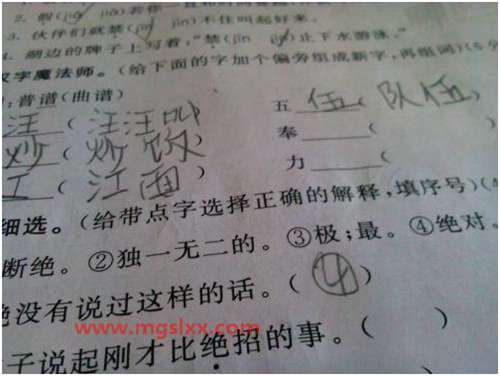 2. 假(jiǎ jià)若你一直
3. 伙伴们就禁(jīn jìn)不住叫起好来。
4. 湖边的牌子上写着,“禁(jīn jìn)止下水游泳。”
汉字魔法师。(给下面的字加个偏旁组成新字,再组词)(6分
:普 谱(曲谱) 五 伍 ( 队伍 )
汪 ( 汪汪叫 奉 (
炒 ( 炒饭 力 (
工 ( 江面 )
细选。(给带点字选择正确的解释,填序号)(4
断绝。②独一无二的。③极;最。④绝对。
绝没有说过这样的话。( ④ )
www.mgslxx.com
子说起刚才比绝招的事。( )